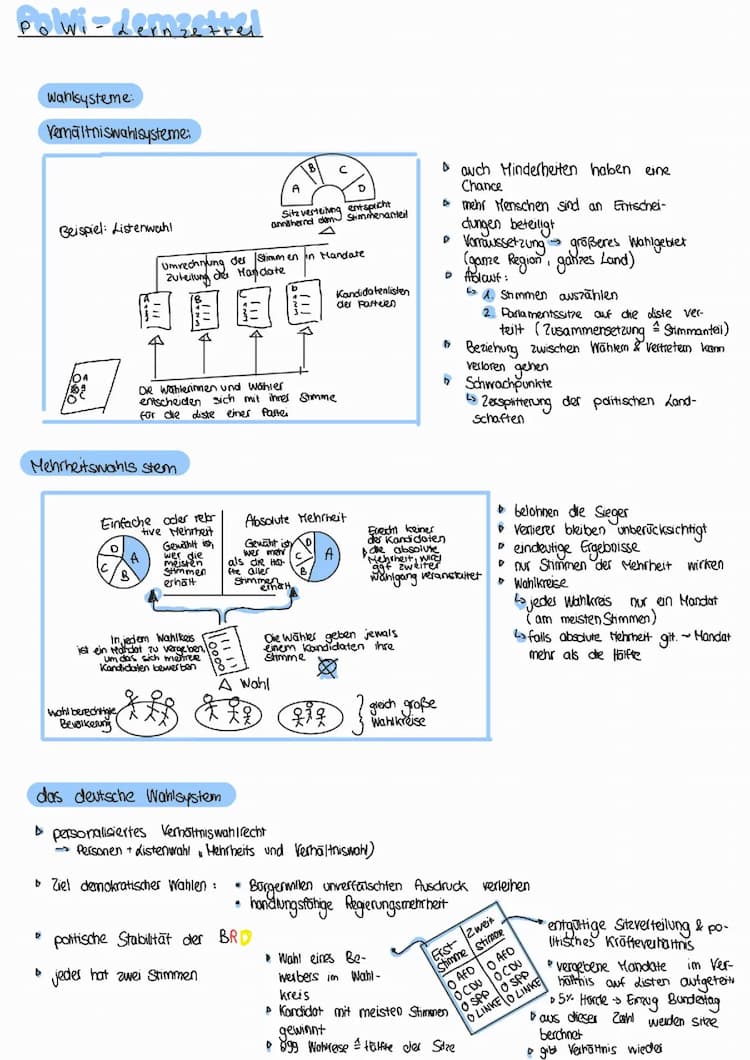 PoWi-Lernzettel
Wahlsysteme:
Verhältniswahlsysteme:
A B C D
Sitzverteilung entspricht
annähernd dem Stimmenanteil
Beispiel: Listenwahl
Umrechnung der Stimmen in Mandate
Zuteilung der Mandate
A B C D
Kandidatenlisten
der Parteien
Die Wählerinnen und Wähler
entscheiden sich mit ihrer Stimme
für die Liste einer Partei
auch Minderheiten haben eine
Chance
mehr Menschen sind an Entschei-
dungen beteiligt
Vorraussetzung → größeres Wahlgebiet
(ganze Region, ganzes Land)
Ablauf:
↳ 1. Stimmen auszählen
2. Parlamentssitze auf die Liste ver-
teilt (Zusammensetzung ≙ Stimmanteil)
Beziehung zwischen Wählern & Vertretern kann
verloren gehen
Schwachpunkte
↳ Zersplitterung der politischen Land-
schaften
Mehrheitswahls stem
Einfache oder rela
tive Mehrheit
Gewählt ist,
wer die
meisten
Stimmen
erhält
D A C B
Absolute Mehrheit
Gewählt ist,
wer mehr
als die Hä-
fte aller
Stimmen
erhält
D A C B
Erreicht keiner
der Kandidaten
die absolute
Mehrheit, wird
ggf zweiter
Wahlgang veranstaltet
In jedem Wahlkreis
ist ein Mandat zu vergeben,
um das sich mehrere
Kandidaten bewerben
Die Wähler geben jeweils
einem Kandidaten ihre
Stimme
Wahl
Wahlberechtigte
Bevölkerung
gleich große
Wahlkreise
belohnen die Sieger
Verlierer bleiben unberücksichtigt
eindeutige Ergebnisse
nur Stimmen der Mehrheit wirken
Wahlkreise
↳ jedes Wahlkreis nur ein Mandat
(am meisten Stimmen)
↳ falls absolute Mehrheit gilt ~ Mandat
mehr als die Hälfte
das deutsche Wahlsystem
personalisiertes Verhältniswahlrecht
→ Personen + Listenwahl, Mehrheits und Verhältniswahl)
Ziel demokratischer Wahlen:
• Bürgerwillen unverfälschten Ausdruck verleihen
• handlungsfähige Regierungsmehrheit
politische Stabilität der BRD
jedes hat zwei Stimmen
Wahl eines Be-
werbers im Wahl-
kreis
Kandidat mit meisten Stimmen
gewinnt
299 Wahlkreise ≙ Hälfte der Sitze
Erst Stimme
Zweit Stimme
O AFD O AFD
O CDU O CDU
O SPD O SPD
O LINKE O LINKE
entgültige Sitzverteilung & po-
litisches Kräfteverhältnis
vergebene Mandate im Ver-
hältnis auf Listen aufgeteilt
5% Hürde → Einzug Bundestag
aus dieser Zahl werden Sitze
berechnet
gibt Verhältnis wieder